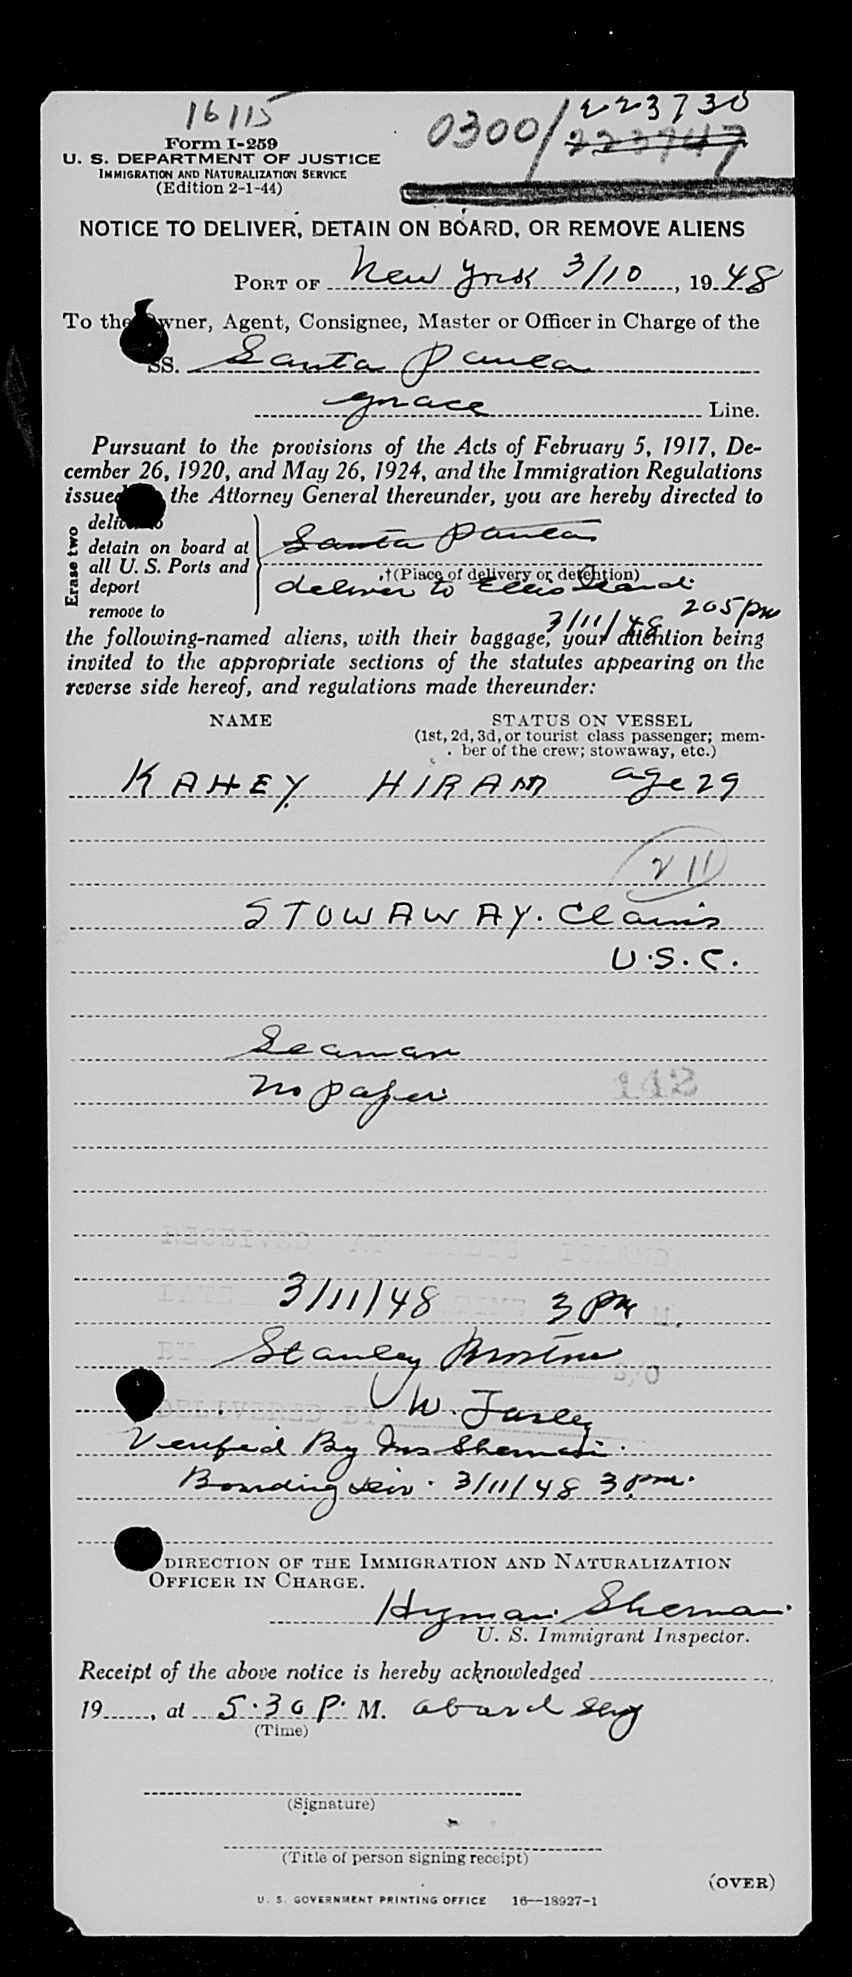 16115
0300/223730
223747
Form I-259
U. S. DEPARTMENT OF JUSTICE
IMMIGRATION AND NATURALIZATION SERVICE
(Edition 2-1-44)
NOTICE TO DELIVER, DETAIN ON BOARD, OR REMOVE ALIENS
PORT OF New York 3/10, 1948
To the Owner, Agent, Consignee, Master or Officer in Charge of the
SS. Santa Paula
Grace Line.
Pursuant to the provisions of the Acts of February 5, 1917, De-
cember 26, 1920, and May 26, 1924, and the Immigration Regulations
issued the Attorney General thereunder, you are hereby directed to
Erase two
deliver to
detain on board at
all U. S. Ports and
deport
remove to
Santa Paula
†(Place of delivery or detention)
deliver to Ellis Island
3/11/48 205 pm
the following-named aliens, with their baggage, your attention being
invited to the appropriate sections of the statutes appearing on the
reverse side hereof, and regulations made thereunder:
NAME STATUS ON VESSEL
(1st, 2d, 3d, or tourist class passenger; mem-
ber of the crew; stowaway, etc.)
KAHEY HIRAM age 29
211
STOWAWAY. Claims
U.S.C.
Seaman
no paper
RECEIVED AT ELLIS ISLAND
DATE TIME M.
3/11/48 3 PM
BY S/O
Stanley
DELIVERED BY
W. Farley
Verified By Ins Sherman.
Boarding Div. 3/11/48 3 pm.
DIRECTION OF THE IMMIGRATION AND NATURALIZATION
OFFICER IN CHARGE.
Hyman Sherman
U. S. Immigrant Inspector.
Receipt of the above notice is hereby acknowledged
19, at 5.30 P. M. aboard
(Time)
(Signature)
(Title of person signing receipt)
(OVER)
U. S. GOVERNMENT PRINTING OFFICE 16—18927-1